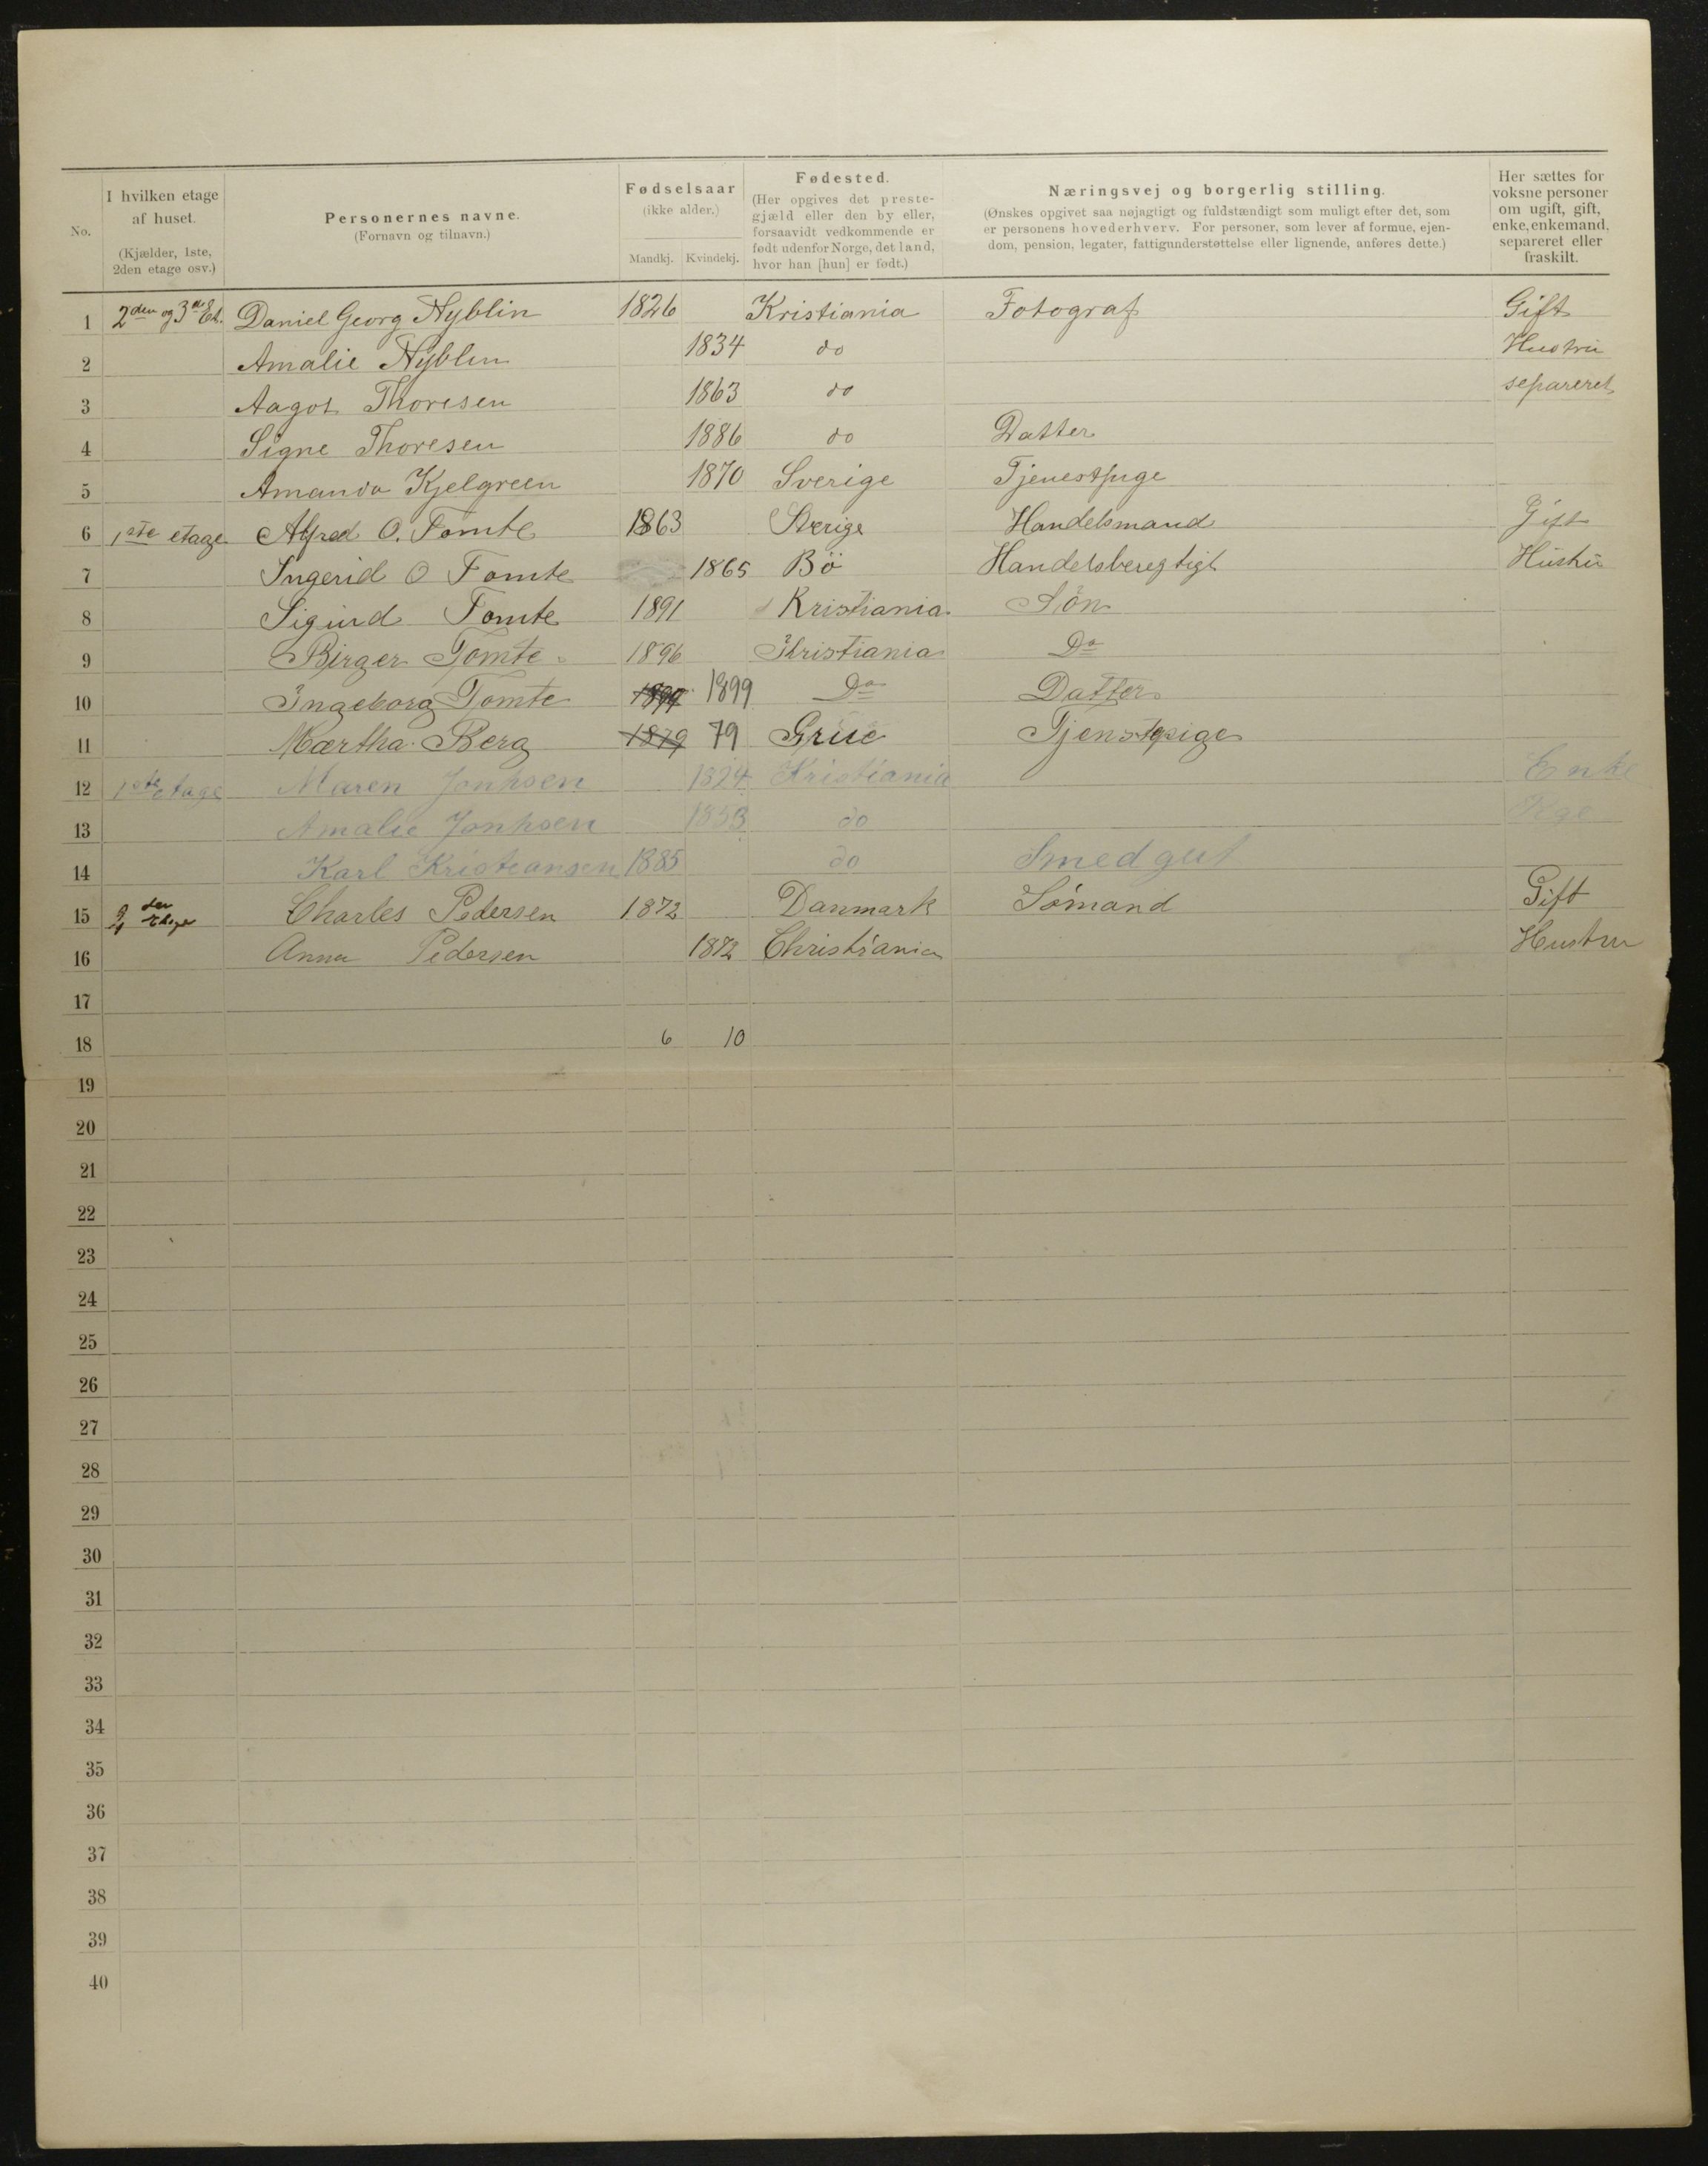 No. | I hvilken etage af huset. (Kjælder, 1ste, 2den etage osv.) | Personernes navne. (Fornavn og tilnavn.) | Fødselsaar (ikke alder.) Mandkj. Kvindekj. | Fødested. (Her opgives det prestegjæld eller den by eller, forsaavidt vedkommende er født udenfor Norge, det land, hvor han [hun] er født.) | Næringsvej og borgerlig stilling. (Ønskes opgivet saa nøjagtigt og fuldstændigt som muligt efter det, som er personens hovederhverv. For personer, som lever af formue, ejendom, pension, legater, fattigunderstøttelse eller lignende, anføres dette.) | Her sættes for voksne personer om ugift, gift, enke, enkemand, separeret eller fraskilt.
1 2den og 3die Et. Daniel Georg Nyblin 1826 Kristiania Fotograf Gift
2 Amalie Nyblin 1834 do Hustru
3 Aagot Thoresen 1863 do separeret
4 Signe Thoresen 1886 do Datter
5 Amanda Kjelgreen 1870 Sverige Tjenestpige
6 1ste etage Alfred O. Tomte 1863 Sverige Handelsmand Gift
7 Ingerid O Tomte 1865 Bö Handelsberegtigt Hustru
8 Sigurd Tomte 1891 Kristiania Sön
9 Birger Tomte 1896 Kristiania Do
10 Ingeborg Tomte 1899 Do Datter
11 Mærtha Berg 1879 79 Grue Tjenestpige
12 1ste etage Maren Jonhsen 1824 Kristiania Enke
13 Amalie Jonhsen 1853 do
14 Karl Kristeansen 1885 do Smedgut
15 2den Etage Charles Pedersen 1872 Danmark Sömand Gift
16 Anna Pedersen 1872 Christiania Hustru
17
18 6 10
19
20
21
22
23
24
25
26
27
28
29
30
31
32
33
34
35
36
37
38
39
40